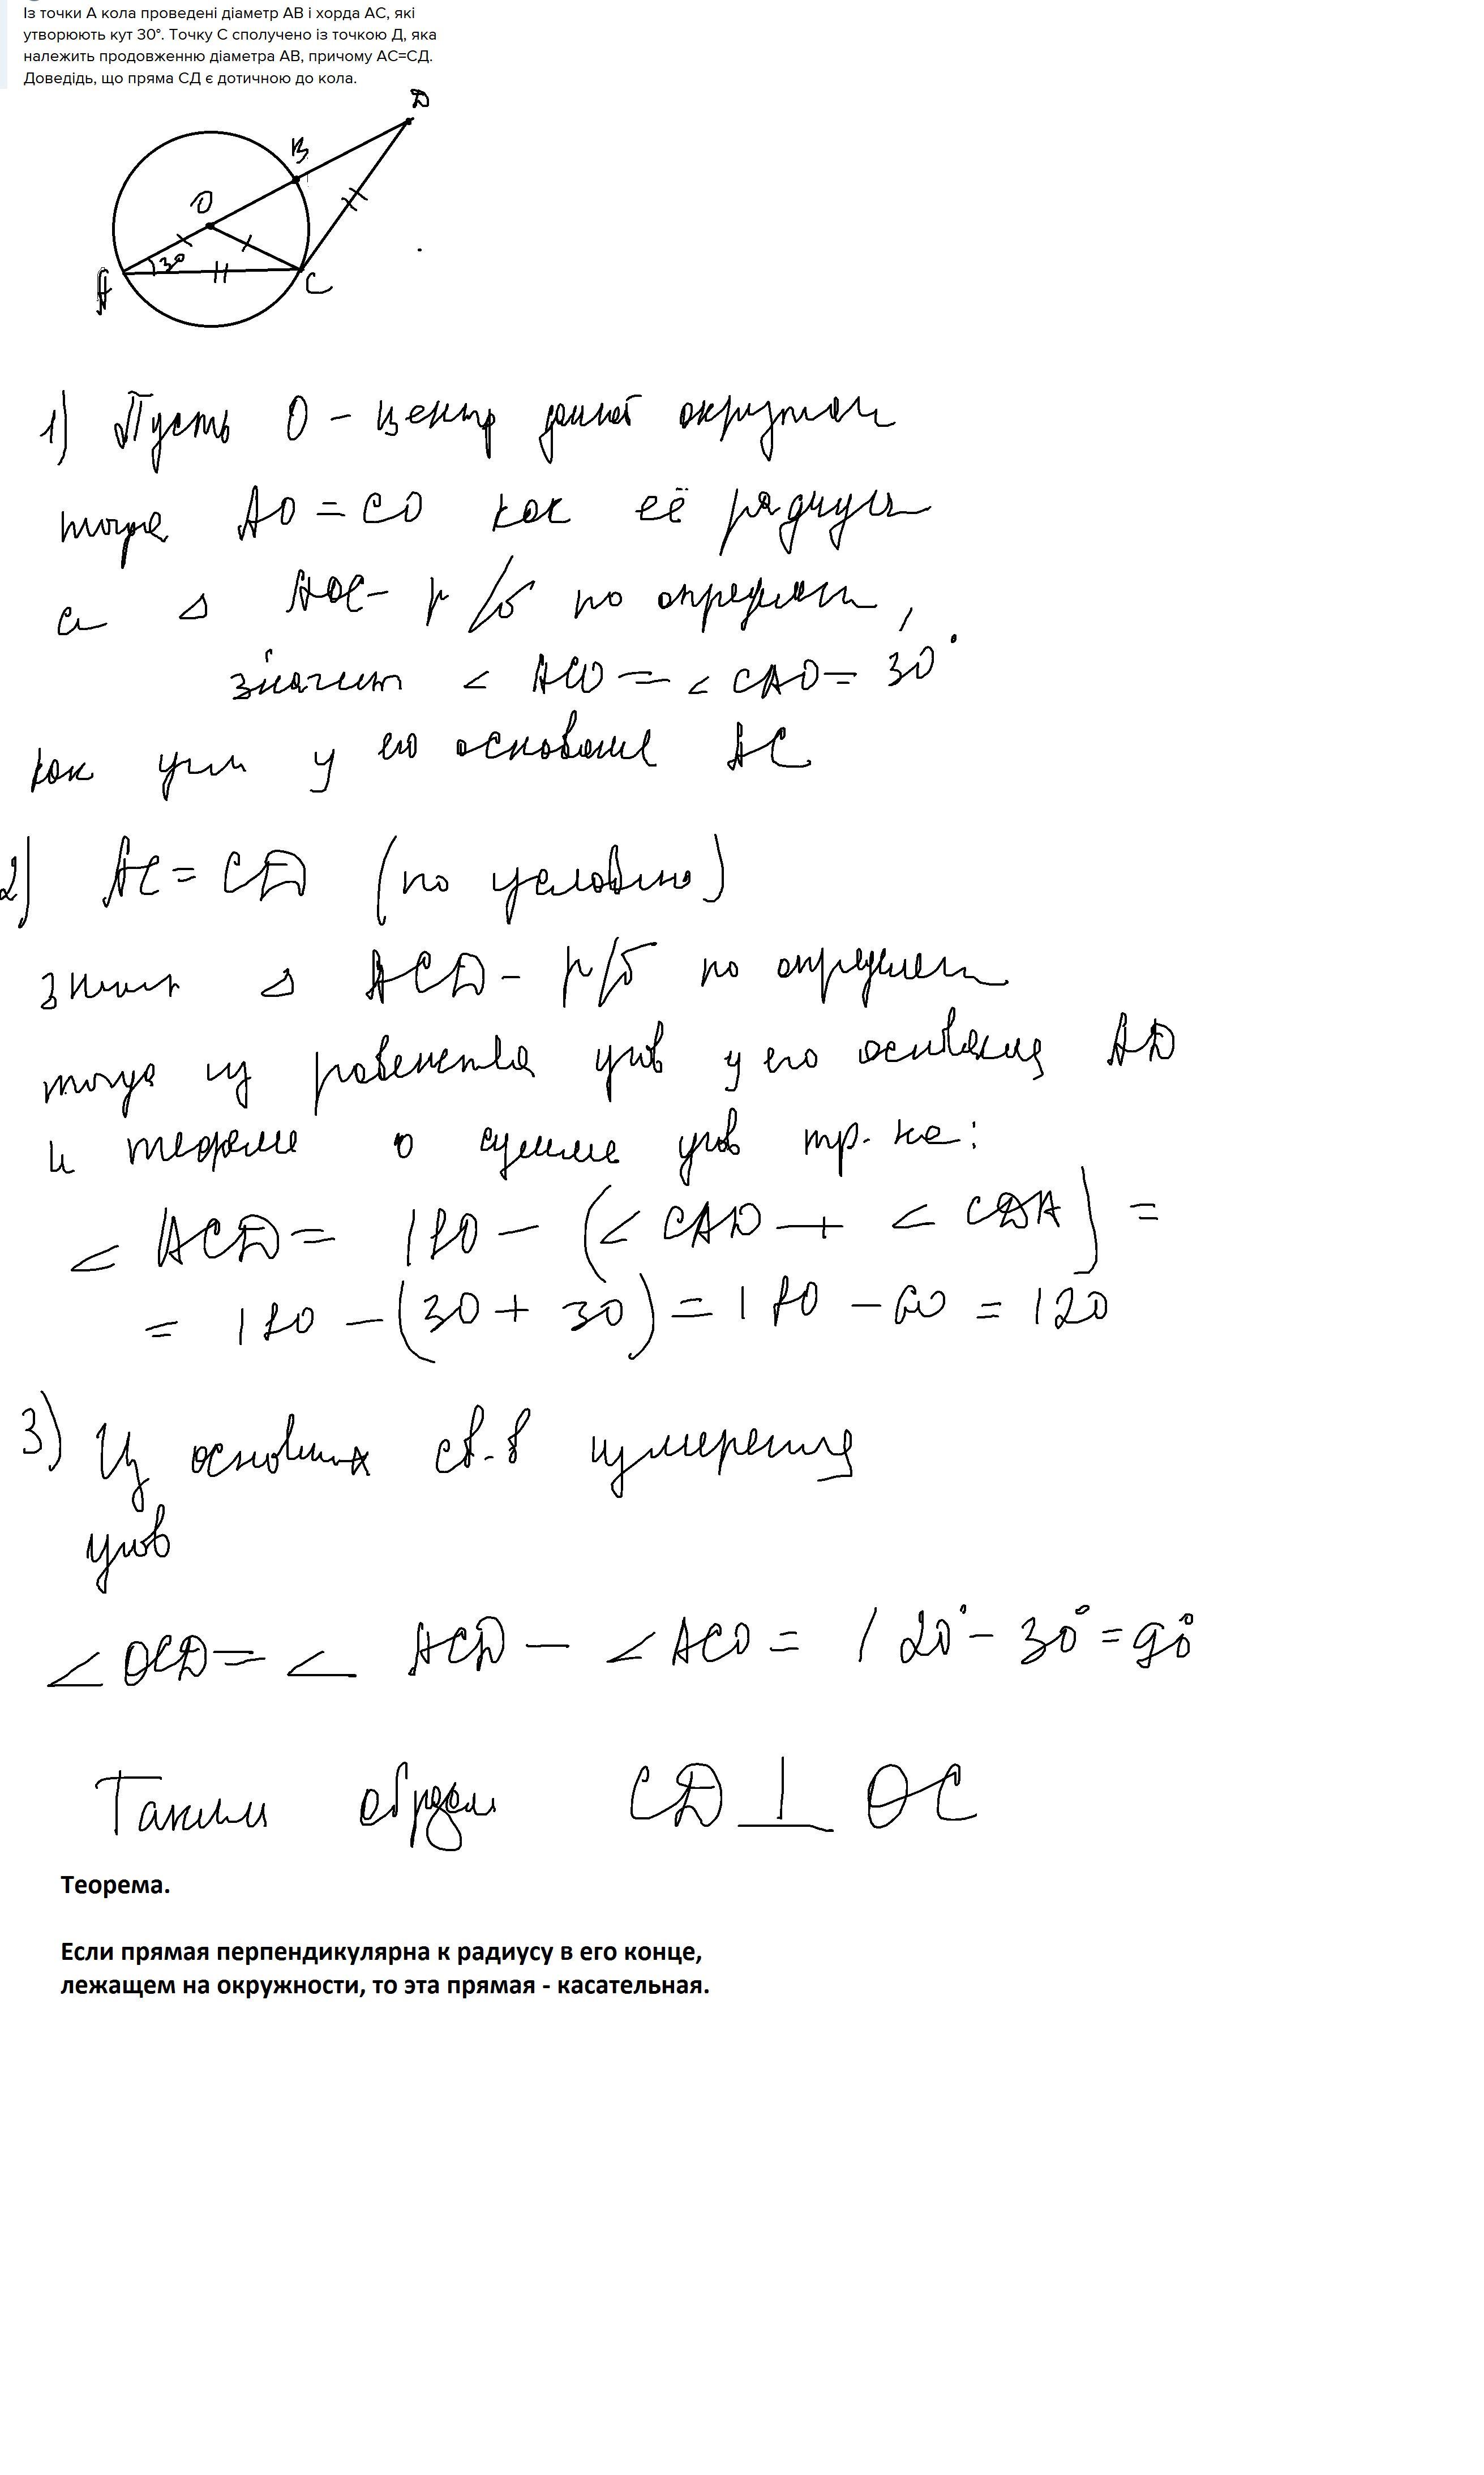 Із точки А кола проведені діаметр АВ і хорда АС, які
утворюють кут 30°. Точку С сполучено із точкою Д, яка
належить продовженню діаметра АВ, причому АС=СД.
Доведідь, що пряма СД є дотичною до кола.
D
B
O
30
A
C
1) Пусть O - центр данной окружн
тогда AO = CO как её радиусы
а △ AOC - р/б по определен,
значит ∠ ACO = ∠ CAO = 30°
как углы у его основание AC
2) AC = CD (по условию)
значит △ ACD - р/б по определен
тогда из равенства углов у его основания AD
и теореме о сумме углов тр-ка:
∠ ACD = 180 - (∠ CAD + ∠ CDA) =
= 180 - (30 + 30) = 180 - 60 = 120
3) Из основных св-в измерения
углов
∠ OCD = ∠ ACD - ∠ ACO = 120° - 30° = 90°
Таким образом CD ⊥ OC
Теорема.
Если прямая перпендикулярна к радиусу в его конце,
лежащем на окружности, то эта прямая - касательная.